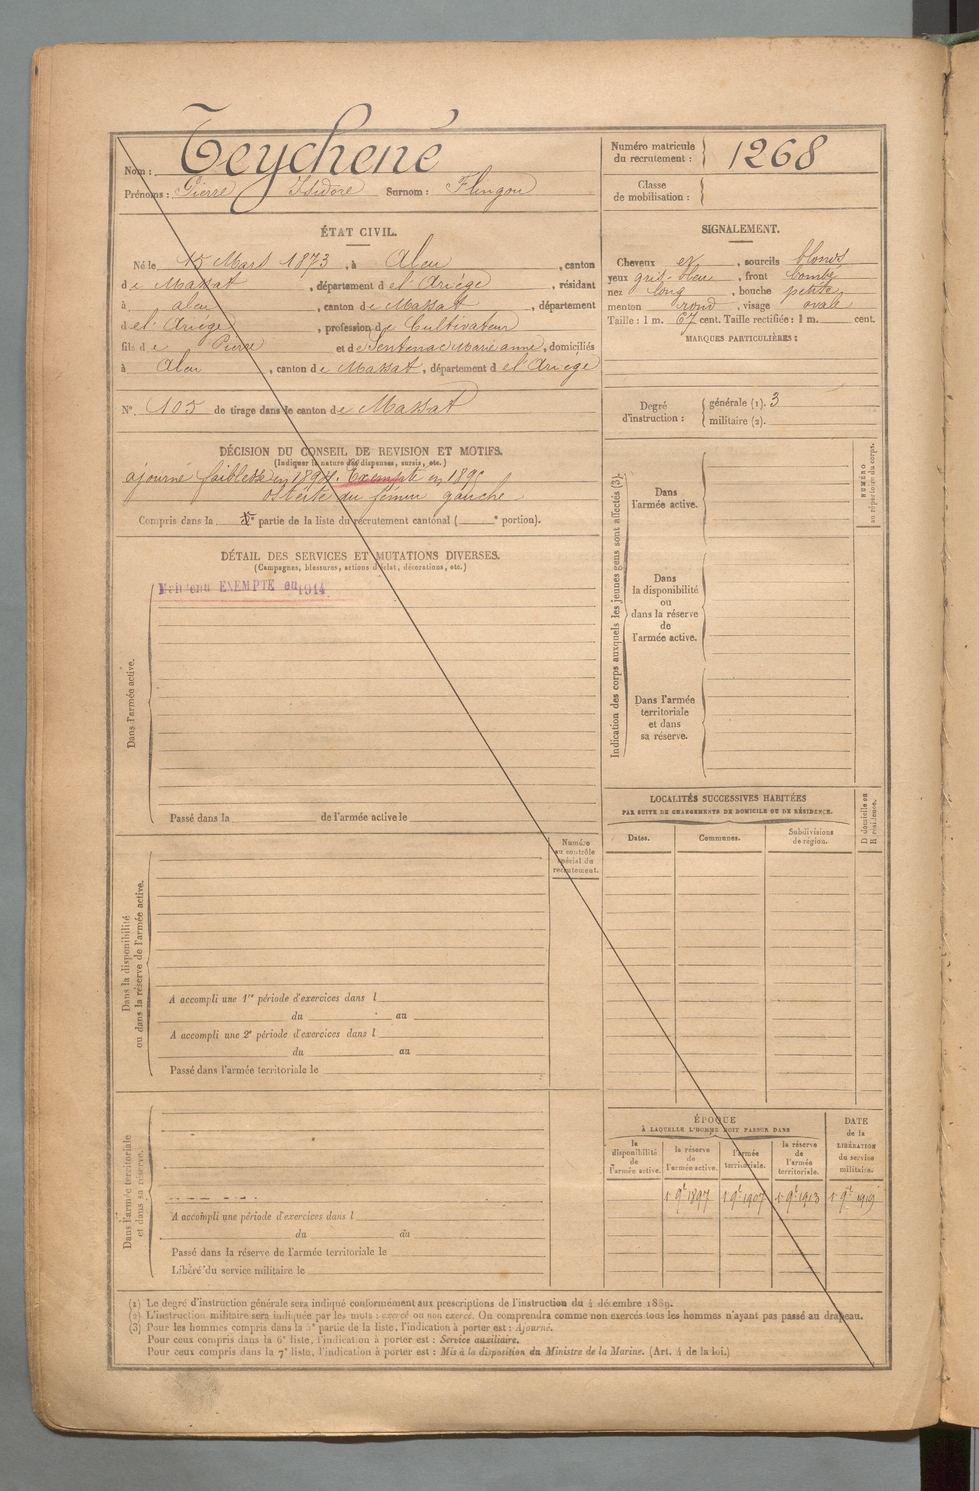 Nom : Teychené
Prénoms : Pierre Isidore Surnom : Flingou
Numéro matricule du recrutement : 1268
Classe de mobilisation :
ÉTAT CIVIL.
Né le 15 Mars 1873, à Aleu, canton
de Massat, département de l'Ariège, résidant
à aleu, canton de Massat, département
de l'Ariège, profession de Cultivateur
fils de Pierre et de Sentenac Marie anne, domiciliés
à Aleu, canton de Massat, département de l'Ariège
N°. 105 de tirage dans le canton de Massat
SIGNALEMENT.
Cheveux et, sourcils blonds
yeux gris-bleu, front bombé
nez long, bouche petite
menton rond, visage ovale
Taille : 1 m. 67 cent. Taille rectifiée : 1 m. cent.
MARQUES PARTICULIÈRES :
Degré d'instruction : générale (1). 3
militaire (2).
DÉCISION DU CONSEIL DE REVISION ET MOTIFS.
(Indiquer la nature des dispenses, sursis, etc.)
ajourné faiblesse en 1894. Exempté en 1895
ostéite du fémur gauche
Compris dans la partie de la liste du recrutement cantonal ( e portion).
DÉTAIL DES SERVICES ET MUTATIONS DIVERSES.
(Campagnes, blessures, actions d'éclat, décorations, etc.)
Dans l'armée active.
Maintenu EXEMPTE en 1914
Passé dans la de l'armée active le
Indication des corps auxquels les jeunes gens sont affectés (3).
Dans l'armée active.
Dans la disponibilité ou dans la réserve de l'armée active.
Dans l'armée territoriale et dans sa réserve.
NUMÉRO au répertoire du corps.
LOCALITÉS SUCCESSIVES HABITÉES
PAR SUITE DE CHANGEMENTS DE DOMICILE OU DE RÉSIDENCE.
Dates. Communes. Subdivisions de région.
D domicile ou R résidence.
Numéro au contrôle spécial du recrutement.
Dans la disponibilité ou dans la réserve de l'armée active.
A accompli une 1re période d'exercices dans l
du au
A accompli une 2e période d'exercices dans l
du au
Passé dans l'armée territoriale le
Dans l'armée territoriale et dans sa réserve.
A accompli une période d'exercices dans l
du au
Passé dans la réserve de l'armée territoriale le
Libéré du service militaire le
ÉPOQUE
À LAQUELLE L'HOMME DOIT PASSER DANS
la disponibilité de l'armée active. la réserve de l'armée active. l'armée territoriale. la réserve de l'armée territoriale.
DATE de la LIBÉRATION du service militaire.
1 9e 1897 1 9e 1907 1 9e 1913 1 9e 1919
(1) Le degré d'instruction générale sera indiqué conformément aux prescriptions de l'instruction du 4 décembre 1889.
(2) L'instruction militaire sera indiquée par les mots : exercé ou non exercé. On comprendra comme non exercés tous les hommes n'ayant pas passé au drapeau.
(3) Pour les hommes compris dans la 5e partie de la liste, l'indication à porter est : Ajourné.
Pour ceux compris dans la 6e liste, l'indication à porter est : Service auxiliaire.
Pour ceux compris dans la 7e liste, l'indication à porter est : Mis à la disposition du Ministre de la Marine. (Art. 4 de la loi.)